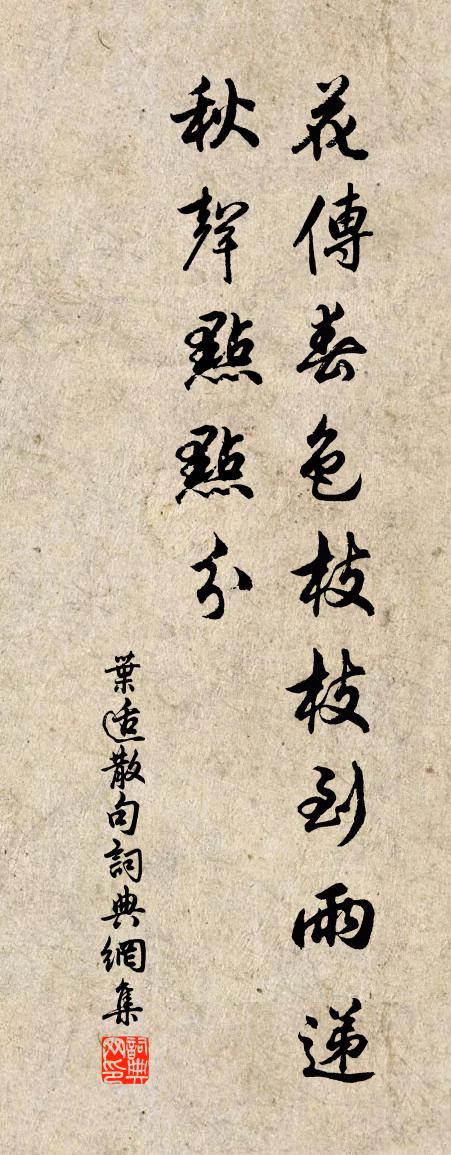 花傳春色枝枝到雨遞
秋聲點點分
葉适散句詞典網集
詞典網印